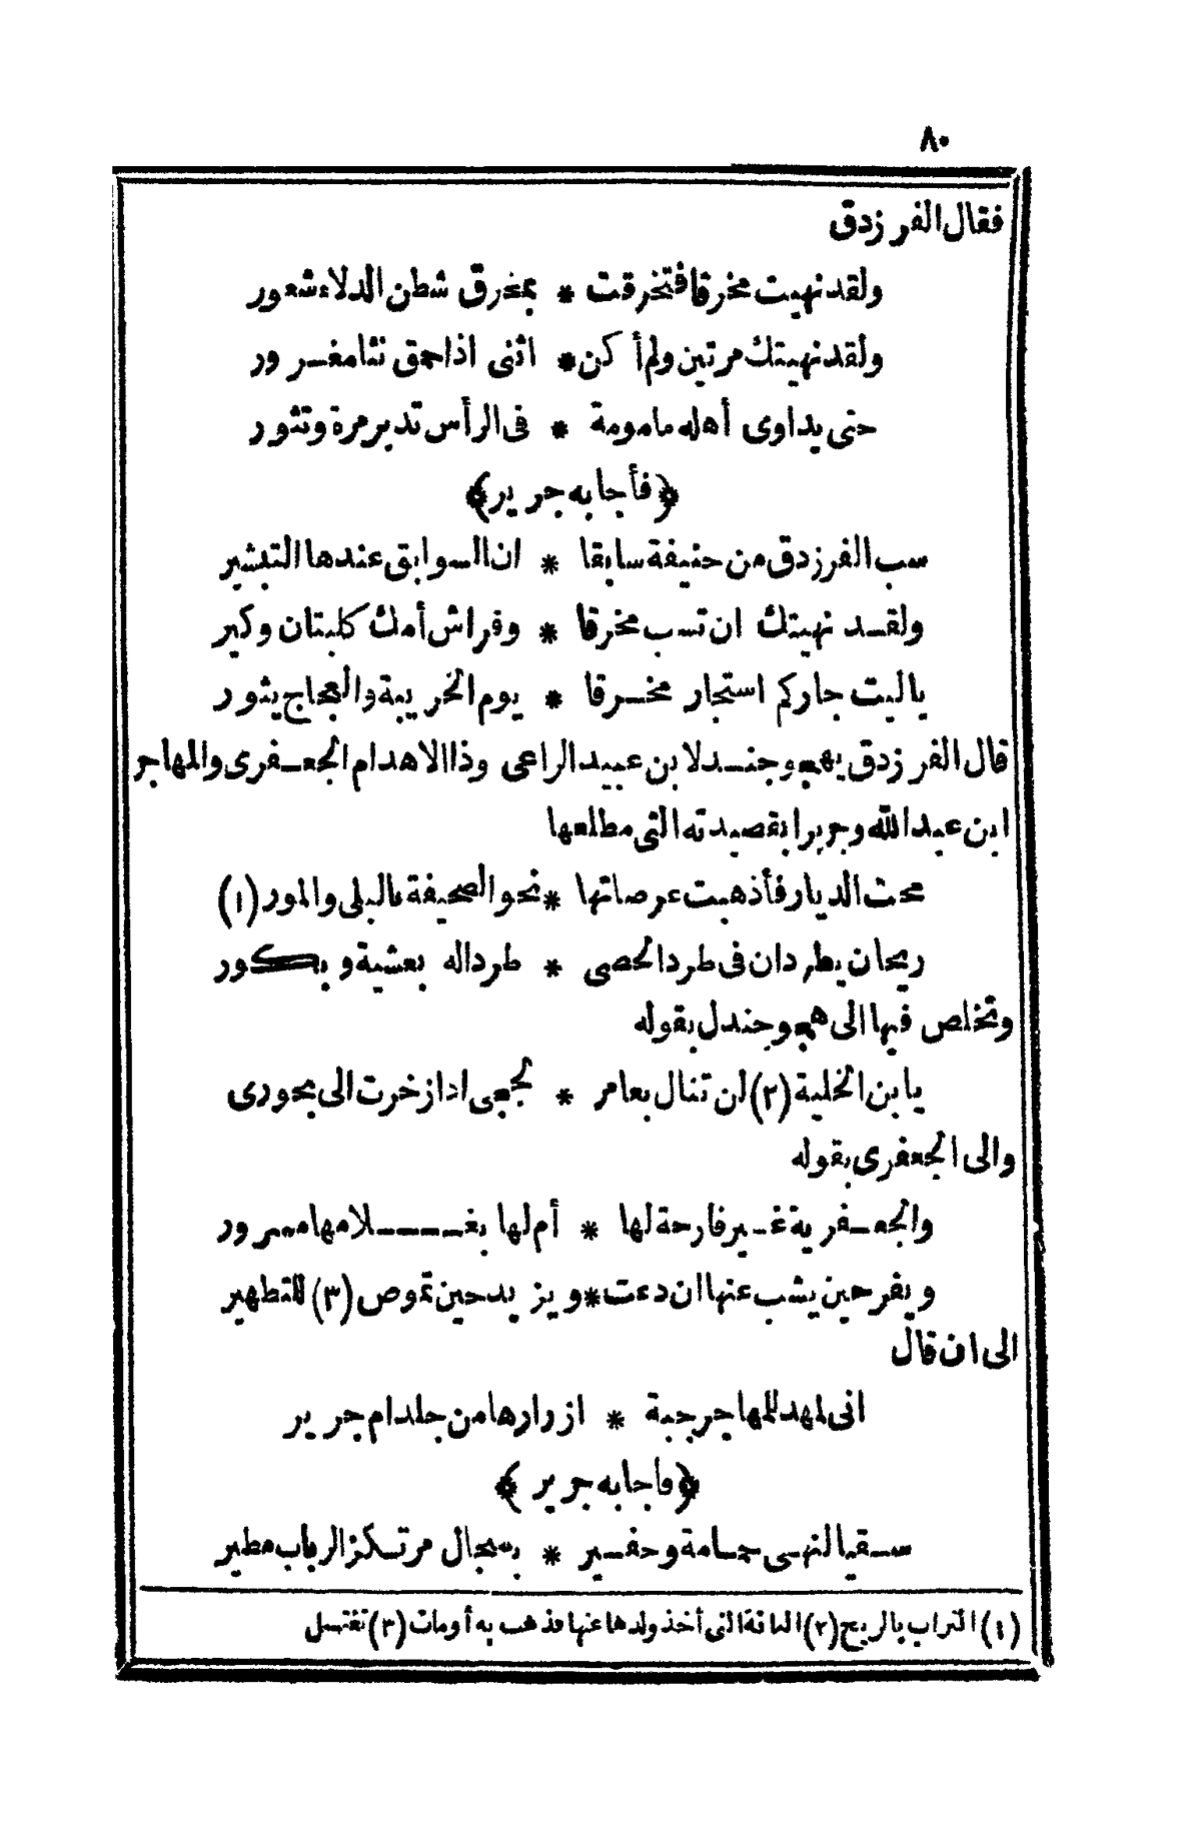 ٨٠
فقال الفرزدق
ولقد نهيت مخرقا فتخرقت * بمخرق شطن الدلاء شعور
ولقد نهيتك مرتين ولم أكن * اثنى اذا حمق ثنا مغرور
حتى يداوى أهله مامومة * فى الرأس تدبر مرة وتثور
﴿فأجابه جرير﴾
سب الفرزدق من حنيفة سابقا * ان السوابق عندها التبشير
ولقد نهيتك ان تسب مخرقا * وفراش أمك كلبتان وكير
ياليت جاركم استجار مخرقا * يوم الخريبة والعجاج يثور
قال الفرزدق يهجو جندلا بن عبيد الراعى وذا الاهدام الجعفرى والمهاجر
ابن عبد الله وجريرا بقصيدته التى مطلعها
محت الديار فأذهبت عرصاتها * نحو الصحيفة بالبلى والمور (١)
ريحان يطردان فى طرد الحصى * طرد اله بعشية وبكور
وتخلص فيها الى هجو جندل بقوله
يا بن الخلية (٢) لن تنال بعامر * لججى اذا زخرت الى بحورى
والى الجعفرى بقوله
والجعفرية غير فارحة لها * أم لها بغلامها مسرور
ويفر حين يشب عنها ان دعت * ويزيد حين تموص (٣) للتطهير
الى ان قال
انى لمهد للمهاجر جبة * ازرارها من جلد ام جرير
﴿فاجابه جرير﴾
سقيا لنهى حمامة وحفير * بسجال مرتكز الرباب مطير
(١) التراب بالريح (٢) الناقة التى أخذ ولدها عنها فذهب به أو مات (٣) تغتسل